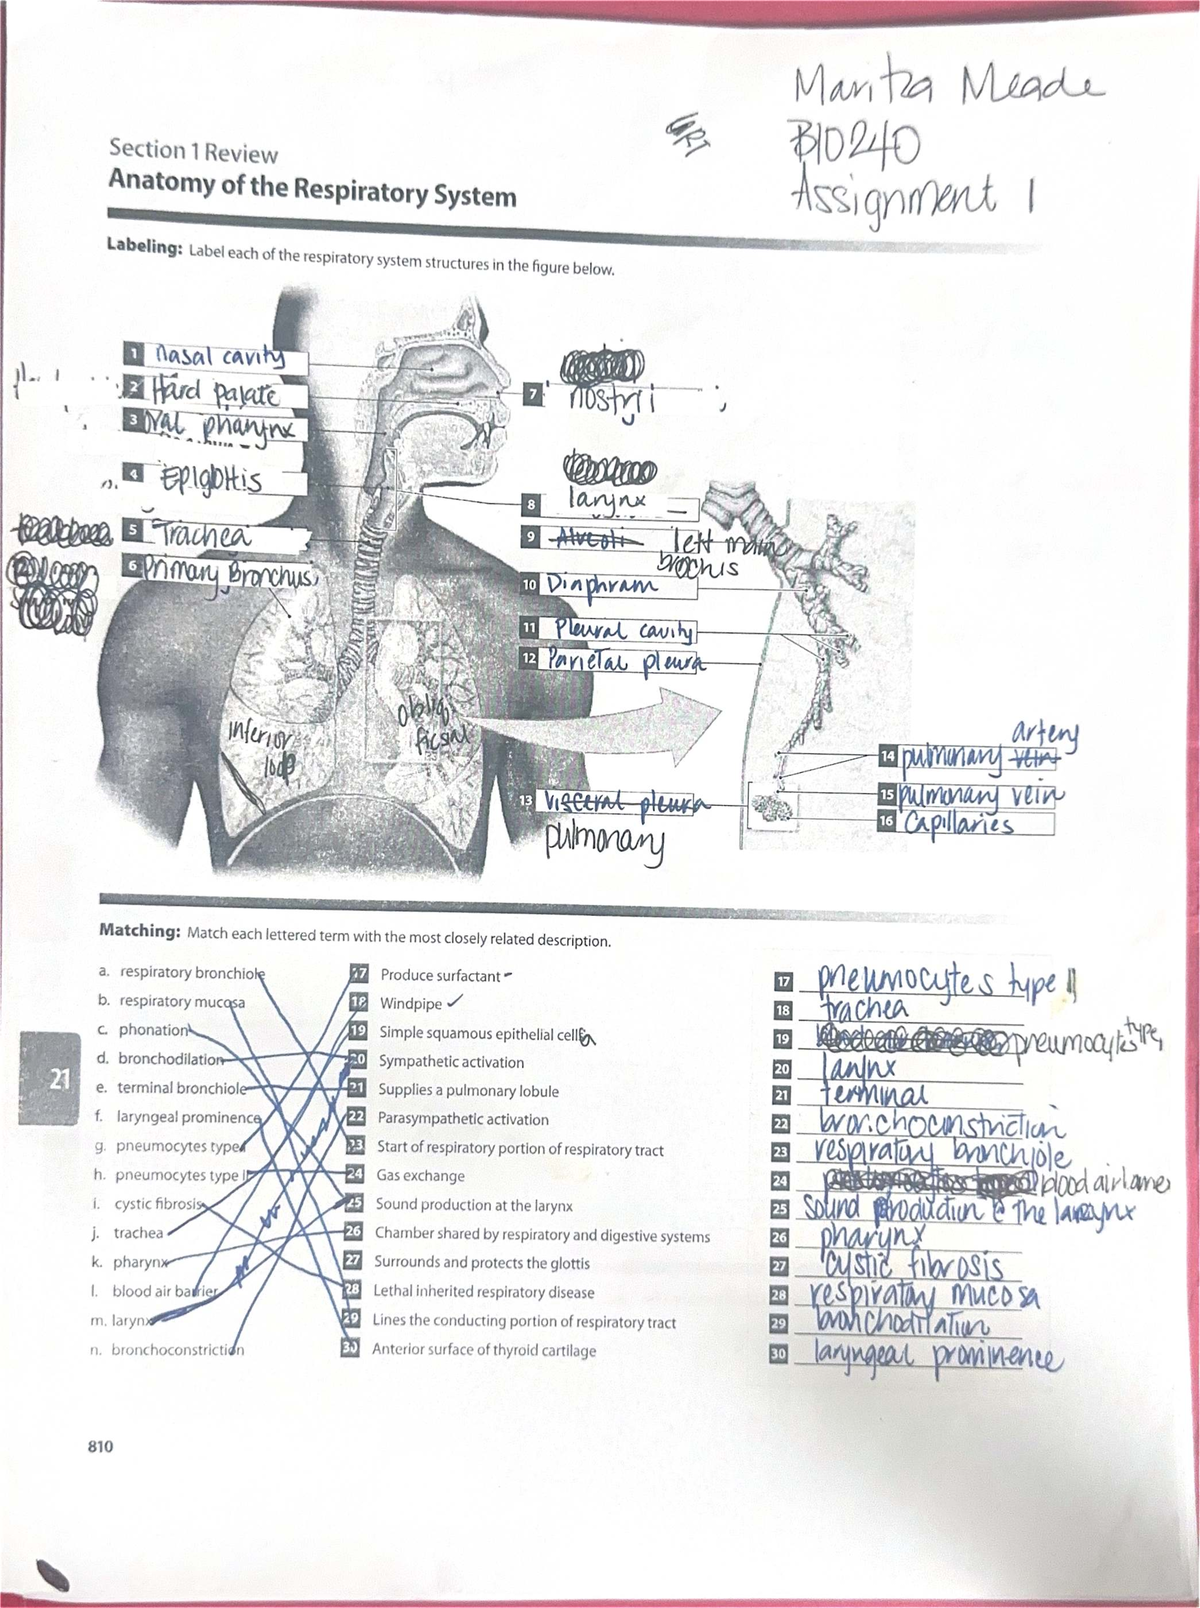 Maritza Meade
BIO240
Assignment 1
URT
Section 1 Review
Anatomy of the Respiratory System
Labeling: Label each of the respiratory system structures in the figure below.
1 nasal cavity
2 Hard palate
3 Oral pharynx
4 Epiglottis
5 Trachea
6 Primary Bronchus
7 nostril
8 larynx
9 Alveoli left main brochis
10 Diaphram
11 Pleural cavity
12 Parietal pleura
inferior lobe
13 visceral pleura
pulmonary
14 pulmonary vein artery
15 pulmonary vein
16 capillaries
Matching: Match each lettered term with the most closely related description.
a. respiratory bronchiole
b. respiratory mucosa
c. phonation
d. bronchodilation
e. terminal bronchiole
f. laryngeal prominence
g. pneumocytes type I
h. pneumocytes type II
i. cystic fibrosis
j. trachea
k. pharynx
l. blood air barrier
m. larynx
n. bronchoconstriction
17 Produce surfactant
18 Windpipe ✓
19 Simple squamous epithelial cells
20 Sympathetic activation
21 Supplies a pulmonary lobule
22 Parasympathetic activation
23 Start of respiratory portion of respiratory tract
24 Gas exchange
25 Sound production at the larynx
26 Chamber shared by respiratory and digestive systems
27 Surrounds and protects the glottis
28 Lethal inherited respiratory disease
29 Lines the conducting portion of respiratory tract
30 Anterior surface of thyroid cartilage
17 pneumocytes type II
18 trachea
19 pneumocytes type I
20 larynx
21 terminal
22 bronchoconstriction
23 respiratory bronchiole
24 blood air
25 sound production @ the larynx
26 pharynx
27 cystic fibrosis
28 respiratory mucosa
29 bronchodilation
30 laryngeal prominence
21
810